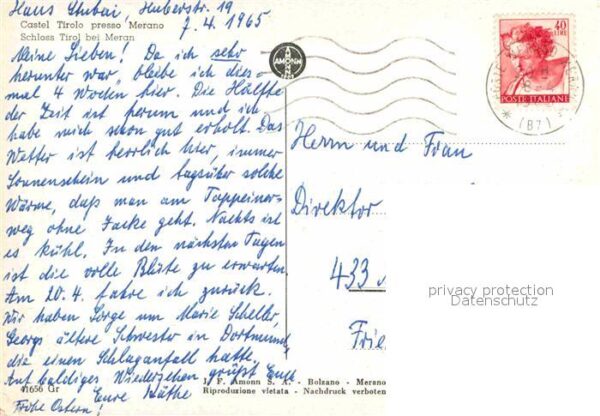 Haus Stubai, Huberstr. 19
7.4.1965
Castel Tirolo presso Merano
Schloss Tirol bei Meran
Meine Lieben! Da ich sehr
herunter war, bleibe ich dies-
mal 4 Wochen hier. Die Hälfte
der Zeit ist herum und ich
habe mich schon gut erholt. Das
Wetter ist herrlich hier, immer
Sonnenschein und tagsüber solche
Wärme, daß man am Tappeiner-
weg ohne Jacke geht. Nachts ist
es kühl. In den nächsten Tagen
ist die volle Blüte zu erwarten.
Am 20.4. fahre ich zurück.
Wir haben Sorge um Marie Scheller,
Georgs ältere Schwester in Dortmund,
die einen Schlaganfall hatte.
Auf baldiges Wiedersehen grüßt Euch
Eure Käthe
Frohe Ostern!
41656 Gr
AMONN
40
LIRE
POSTE ITALIANE
(BZ)
Herrn und Frau
Direktor
433
privacy protection
Datenschutz
Frie
J. F. Amonn S. A. - Bolzano - Merano
Riproduzione vietata - Nachdruck verboten